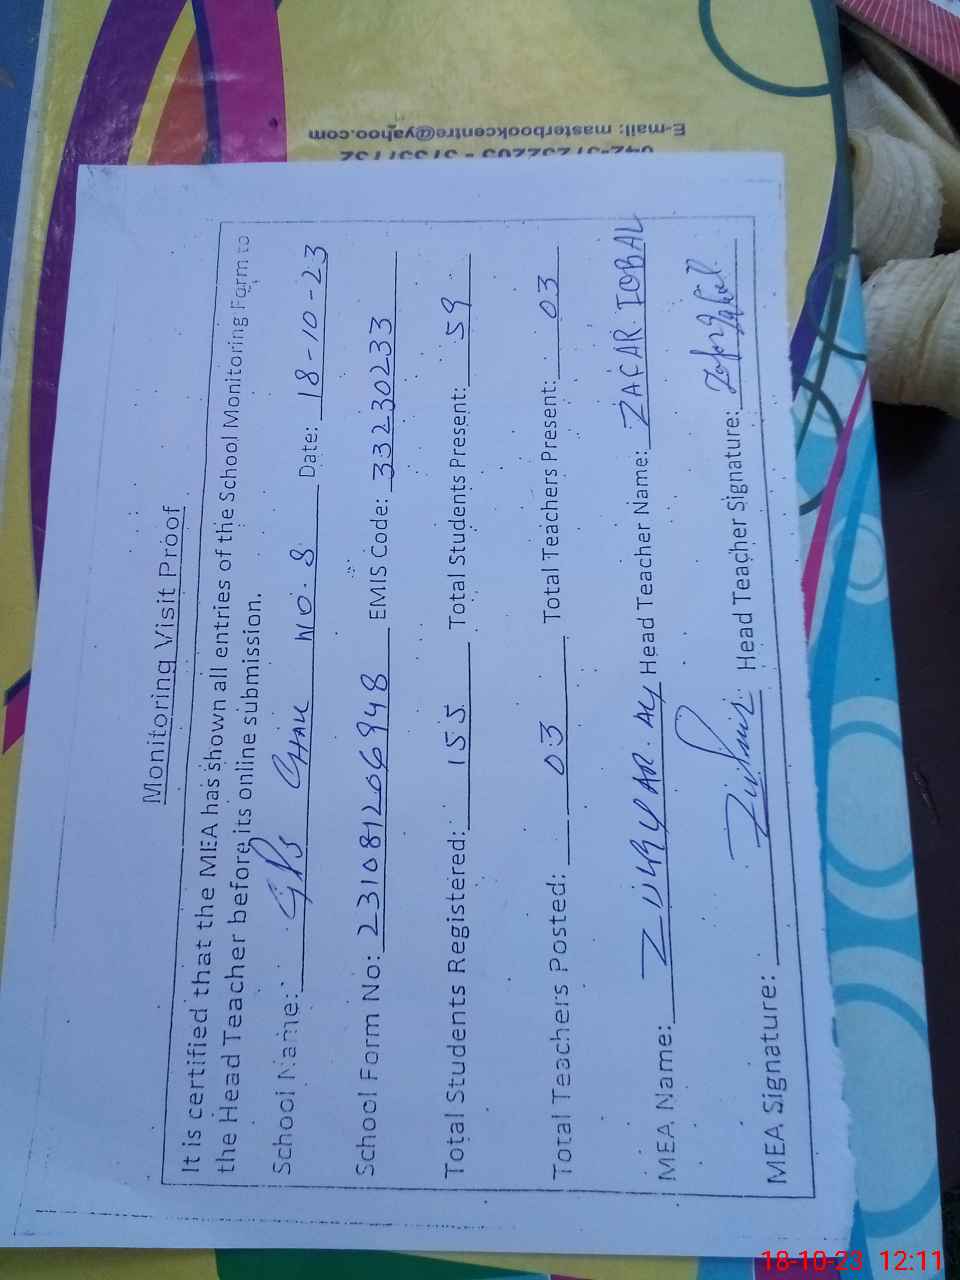 Monitoring Visit Proof
It is certified that the MEA has shown all entries of the School Monitoring Form to
the Head Teacher before its online submission.
School Name: GPS Chak NO. 8 Date: 18-10-23
School Form No: 231081206948 EMIS Code: 33230233
Total Students Registered: 155 Total Students Present: 59
Total Teachers Posted: 03 Total Teachers Present: 03
MEA Name: ZULFIQAR ALI Head Teacher Name: ZAFAR IQBAL
MEA Signature: Head Teacher Signature: Zafar Iqbal
E-mail: masterbookcentre@yahoo.com
18-10-23 12:11